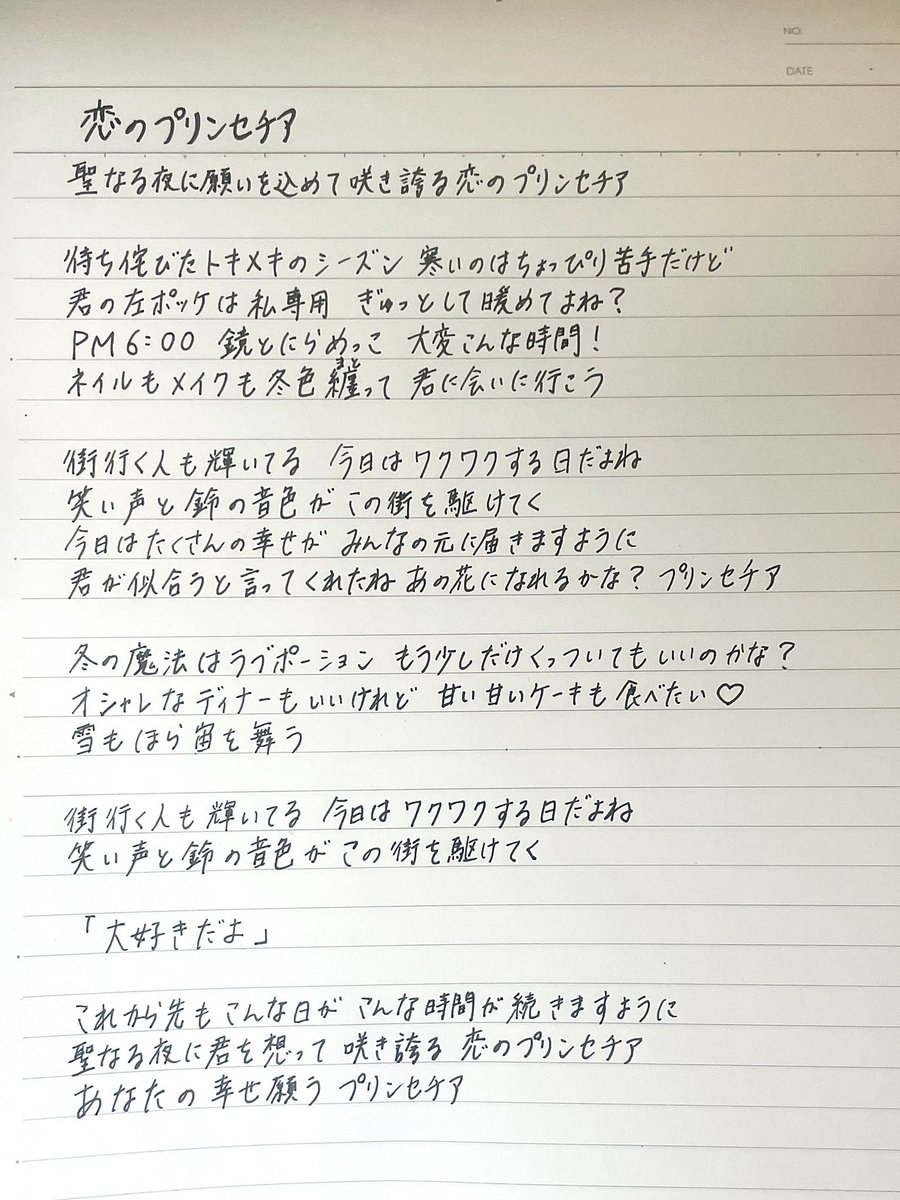 NO.
DATE
恋のプリンセチア
聖なる夜に願いを込めて咲き誇る恋のプリンセチア
待ち侘びたトキメキのシーズン 寒いのはちょっぴり苦手だけど
君の左ポッケは私専用 ぎゅっとして暖めてよね？
PM6:00 鏡とにらめっこ 大変こんな時間！
まと
ネイルもメイクも冬色纏って 君に会いに行こう
街行く人も輝いてる 今日はワクワクする日だよね
笑い声と鈴の音色が この街を駆けてく
今日はたくさんの幸せが みんなの元に届きますように
君が似合うと言ってくれたね あの花になれるかな？ プリンセチア
冬の魔法はラブポーション もう少しだけくっついてもいいのかな？
オシャレなディナーもいいけれど 甘い甘いケーキも食べたい♡
雪もほら宙を舞う
街行く人も輝いてる 今日はワクワクする日だよね
笑い声と鈴の音色が この街を駆けてく
「大好きだよ」
これから先もこんな日が こんな時間が続きますように
聖なる夜に君を想って 咲き誇る 恋のプリンセチア
あなたの幸せ願う プリンセチア